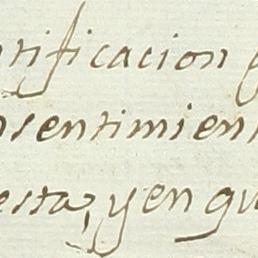 ntificacion
nsentimien
esta, y en qu